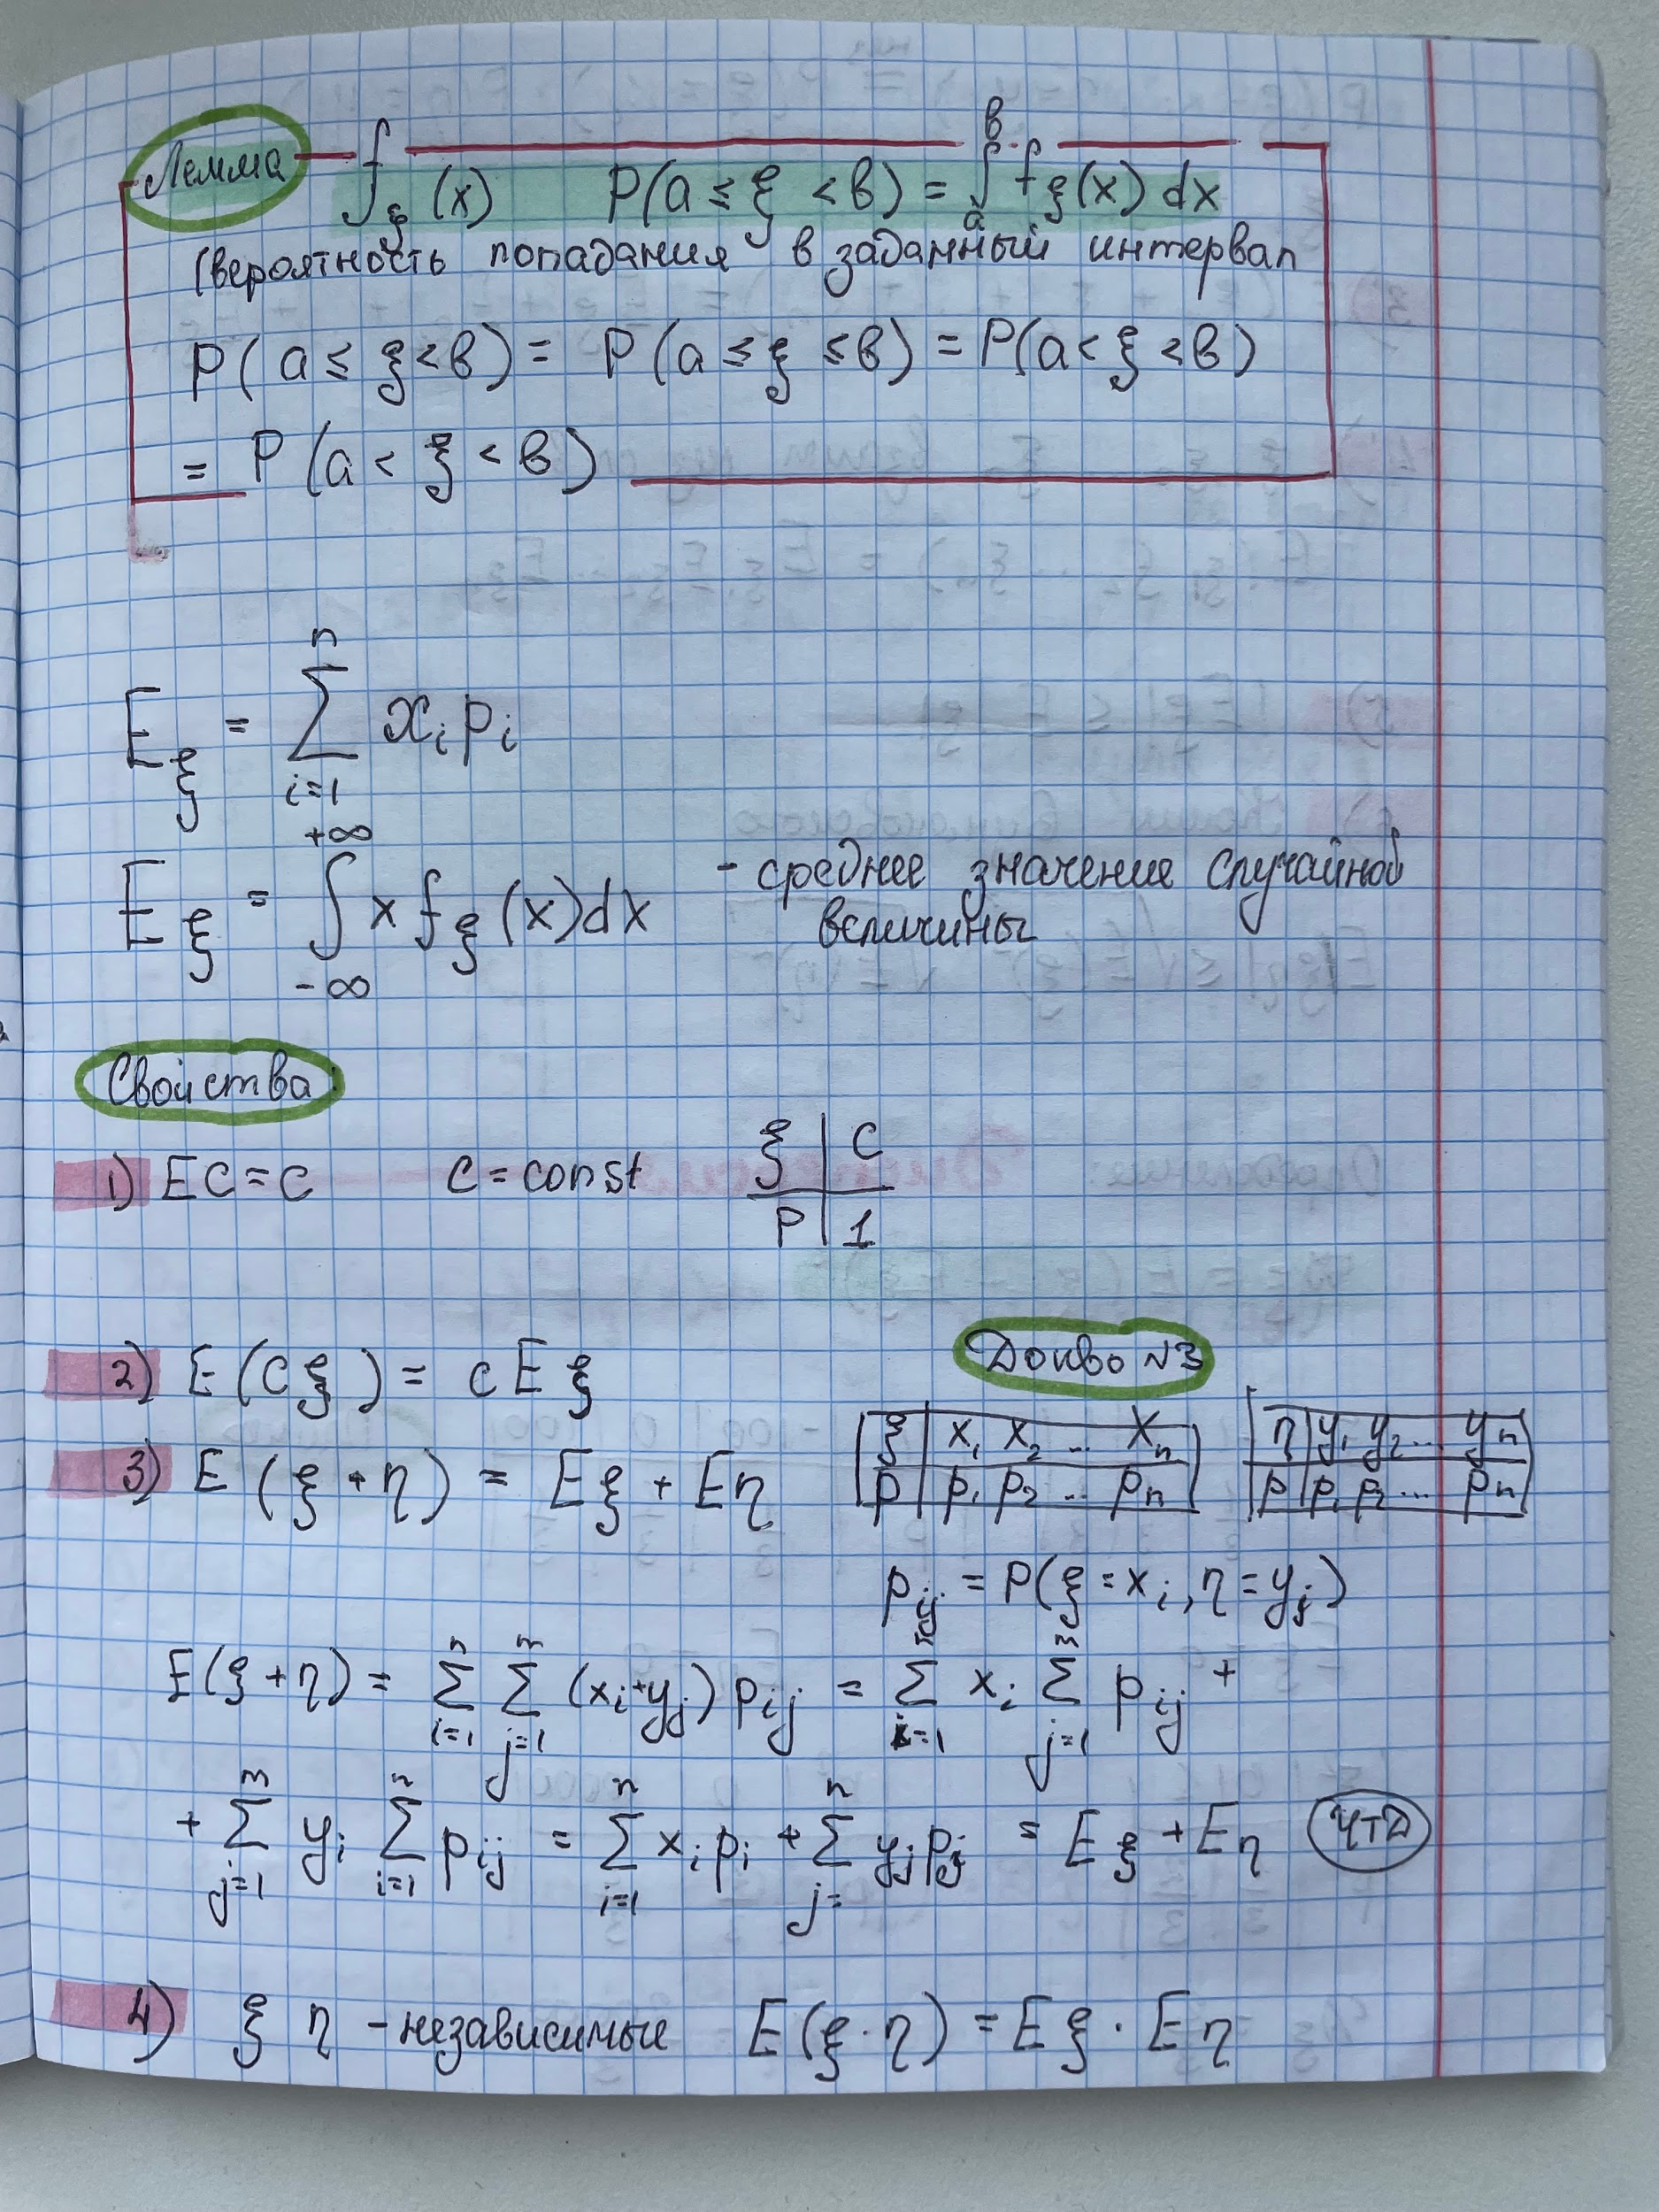 Лемма f_ξ(x) P(a ≤ ξ < b) = ∫_a^b f_ξ(x) dx
(вероятность попадания в заданный интервал
P(a ≤ ξ < b) = P(a ≤ ξ ≤ b) = P(a < ξ < b)
= P(a < ξ < b)
E_ξ = ∑_{i=1}^{n} x_i p_i
E_ξ = ∫_{-∞}^{+∞} x f_ξ(x)dx - среднее значение случайной
величины
Свойства
1) EC = C C = const
ξ | C
P | 1
2) E(Cξ) = CEξ
3) E(ξ + η) = Eξ + Eη
Докво №3
ξ | x_1 x_2 ... x_n
p | p_1 p_2 ... p_n
η | y_1 y_2 ... y_n
p | p_1 p_2 ... p_n
p_ij = P(ξ = x_i, η = y_j)
E(ξ + η) = ∑_{i=1}^{n} ∑_{j=1}^{m} (x_i + y_j) p_ij = ∑_{i=1}^{n} x_i ∑_{j=1}^{m} p_ij +
+ ∑_{j=1}^{m} y_i ∑_{i=1}^{n} p_ij = ∑_{i=1}^{n} x_i p_i + ∑_{j=}^{n} y_j p_j = Eξ + Eη ЧТД
4) ξ η - независимые E(ξ · η) = Eξ · Eη